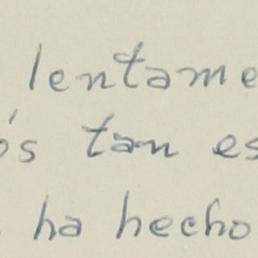 lentame
ós tan es
ha hecho